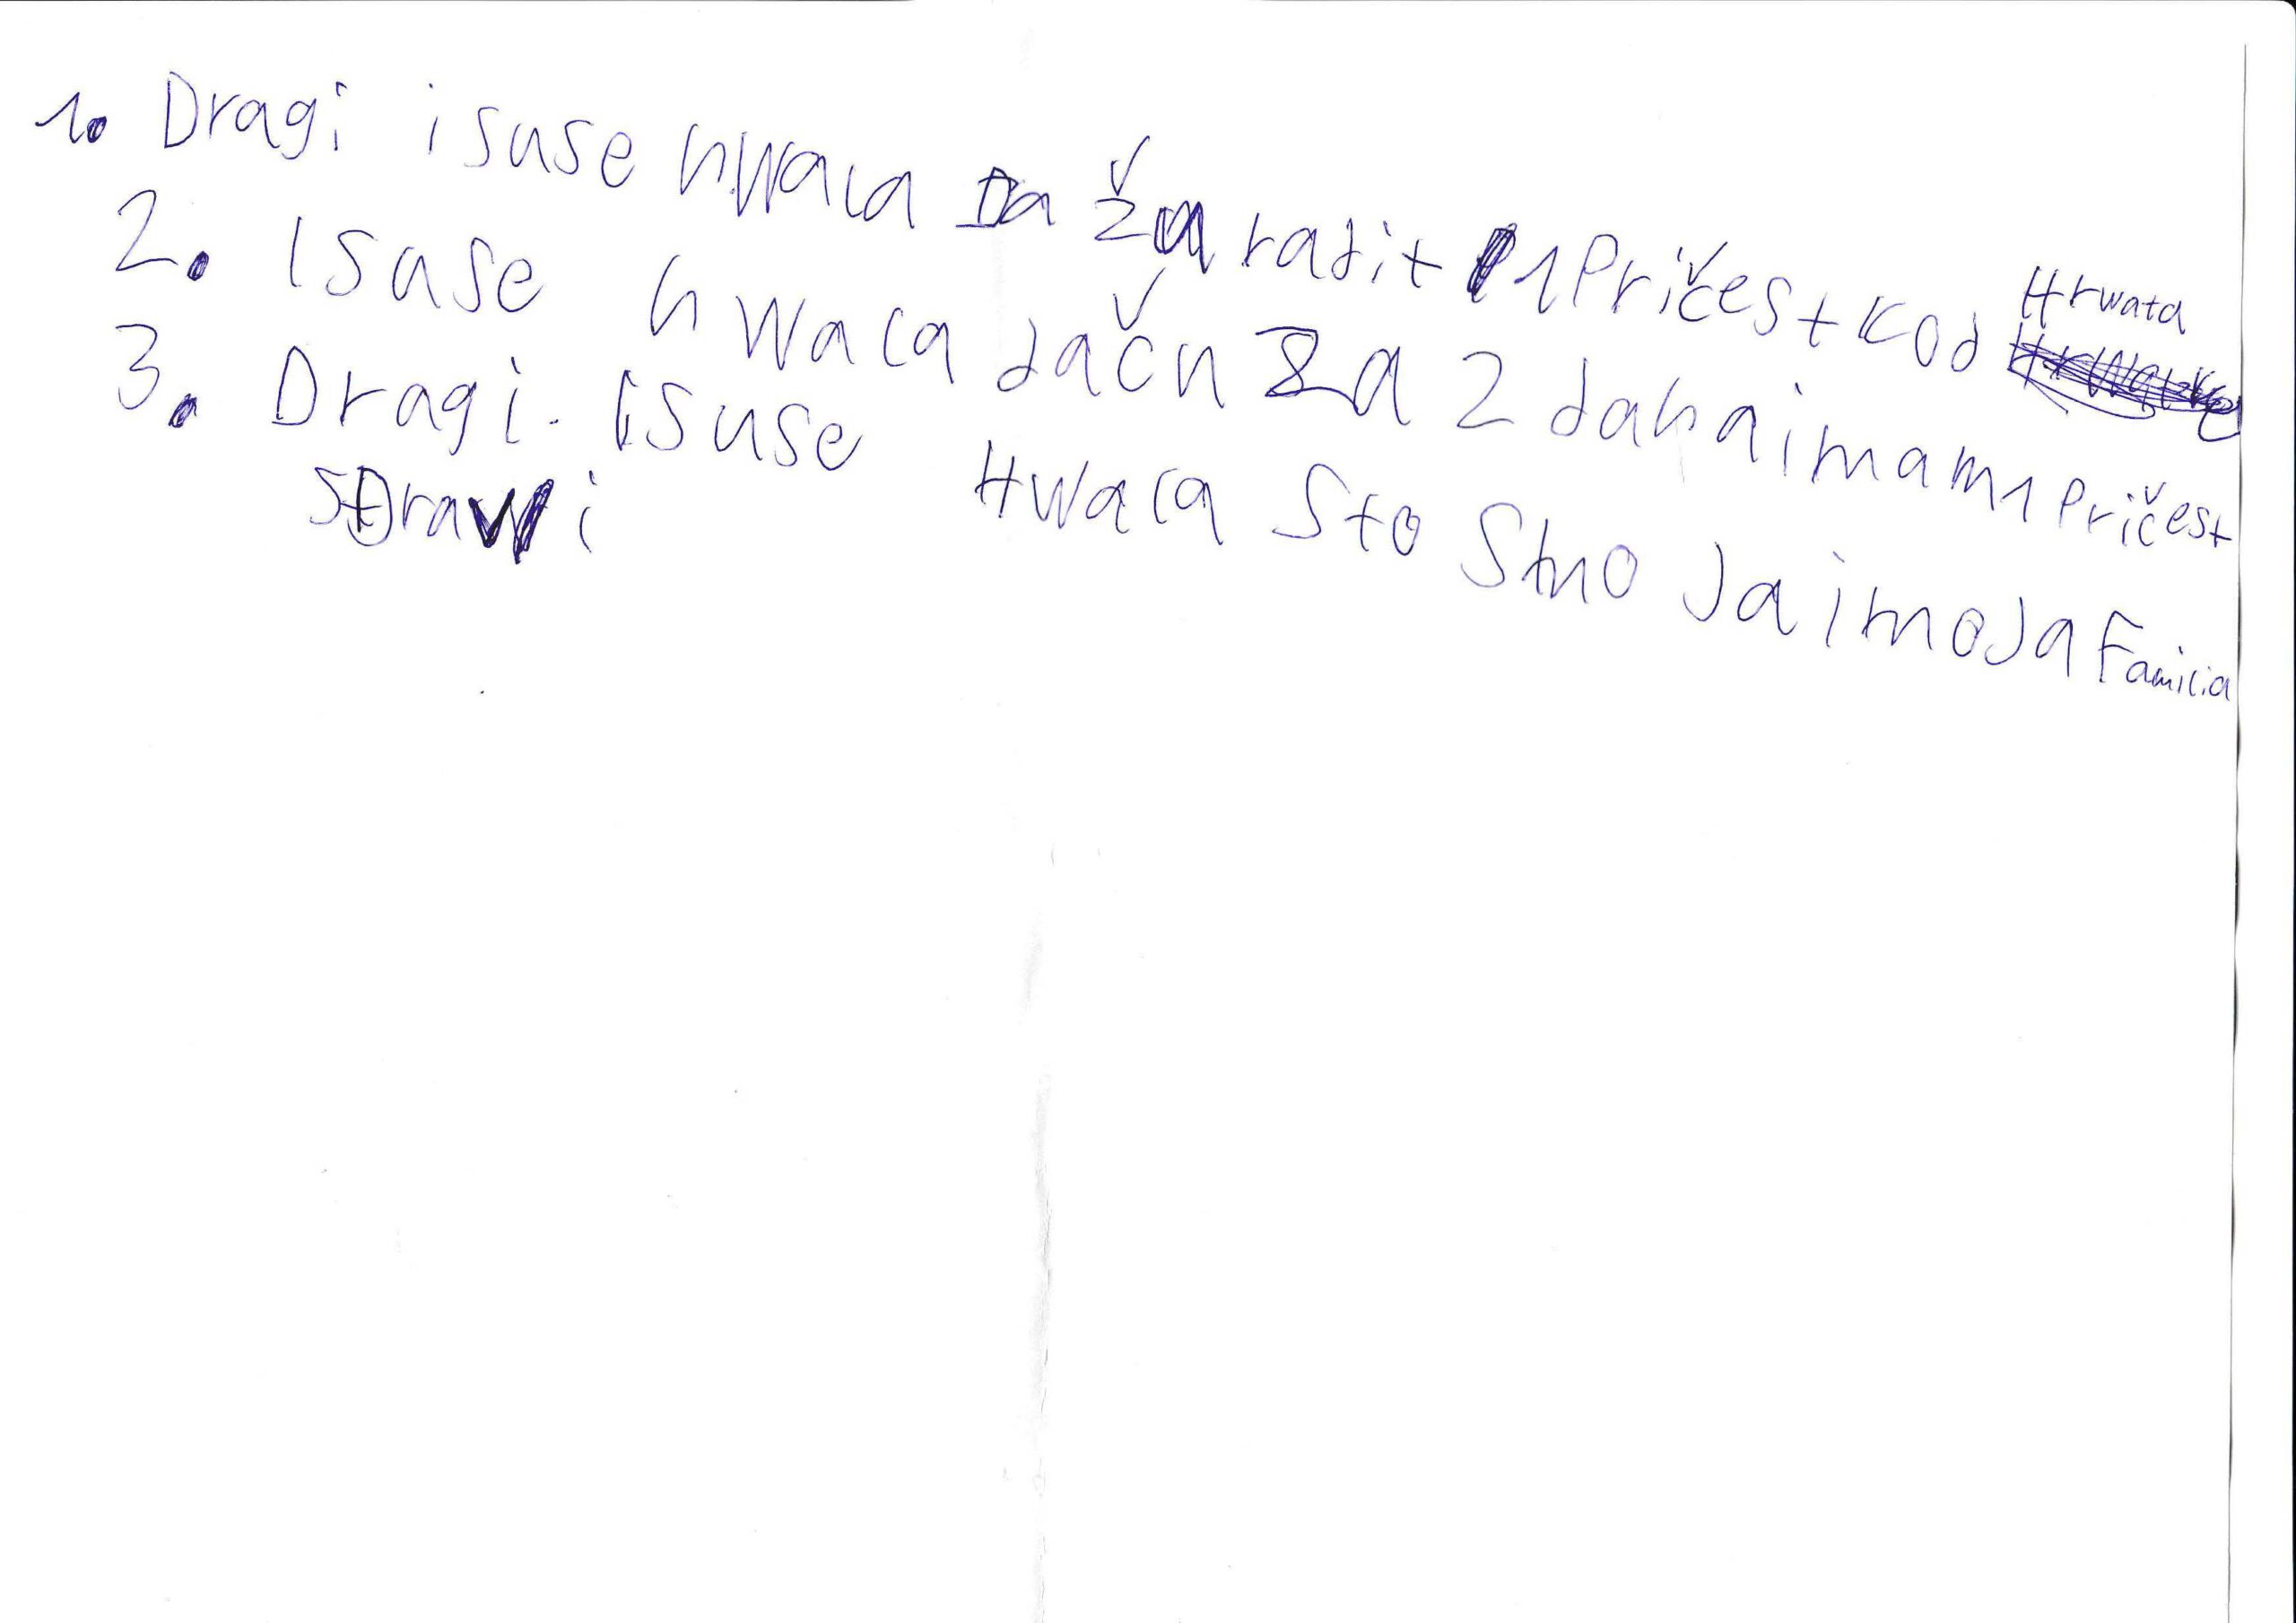 1. Dragi isuse hwala Da ža radit 1 Pričest kod Hrwata
2. Isuse hwala dačn za 2 dana imam 1 Pričest
3. Dragi. isuse Hwala Sto Smo Ja i moJa Familia
sDrawi